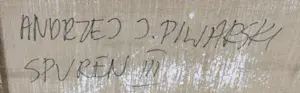 ANDRZEJ J. PIWARSKI
SPUREN III